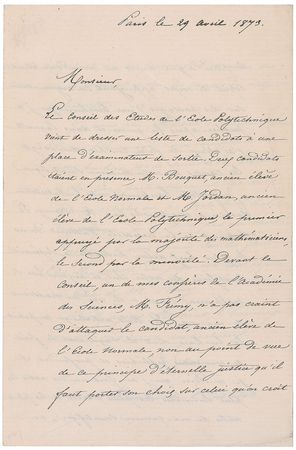 Paris le 29 avril 1873.
Monsieur
Le Conseil des Etudes de l'Ecole Polytechnique
vient de dresser une liste de candidats à une
place d'examinateur de Sortie. Deux candidats
étaient en présence, M. Bouquet, ancien élève
de l'Ecole Normale et M. Jordan, ancien
élève de l'Ecole Polytechnique, le premier
appuyé par la majorité des mathématiciens,
le second par la minorité. Devant le
Conseil, un de mes confrères de l'Académie
des Sciences, M. Frémy, n'a pas craint
d'attaquer le candidat, ancien élève de
l'Ecole Normale, non au point de vue
de ce principe d'éternelle justice qu'il
faut porter son choix sur celui qu'on croit